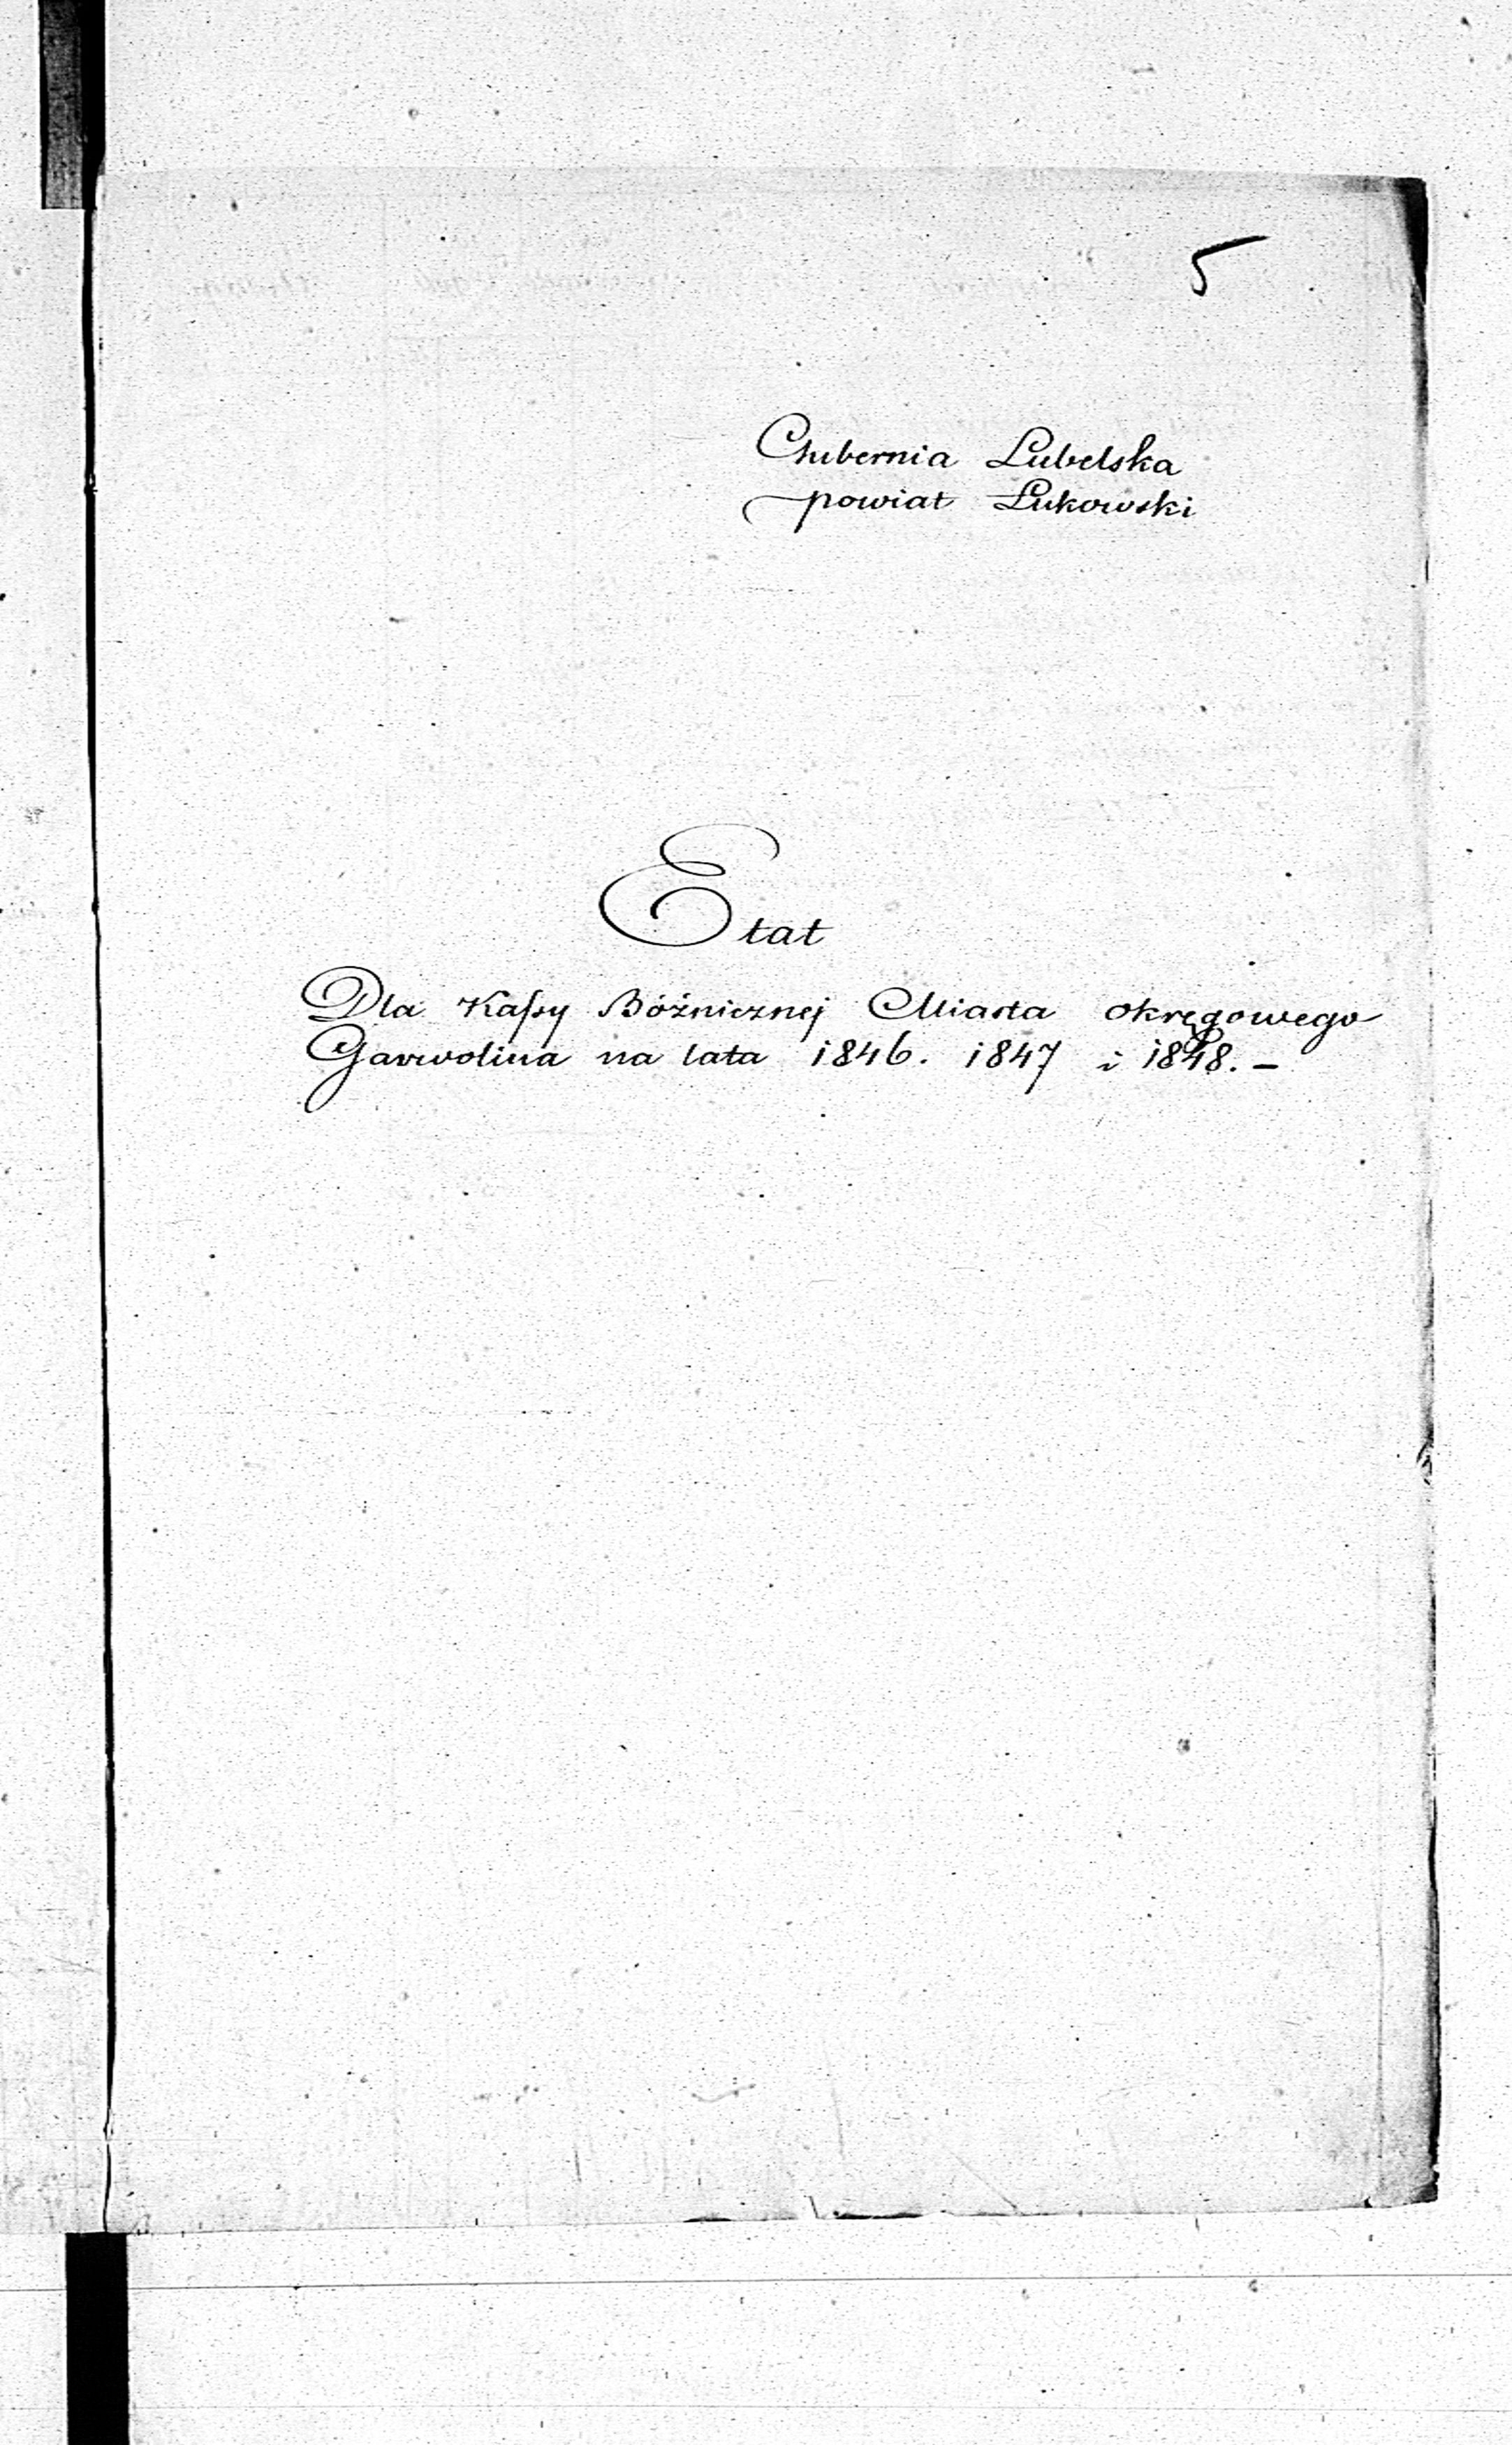 5
Gubernia Lubelska
powiat Łukowski
Etat
Dla Kassy Bóżnicznej Miasta okręgowego
Garwolina na lata 1846. 1847 i 1848. –